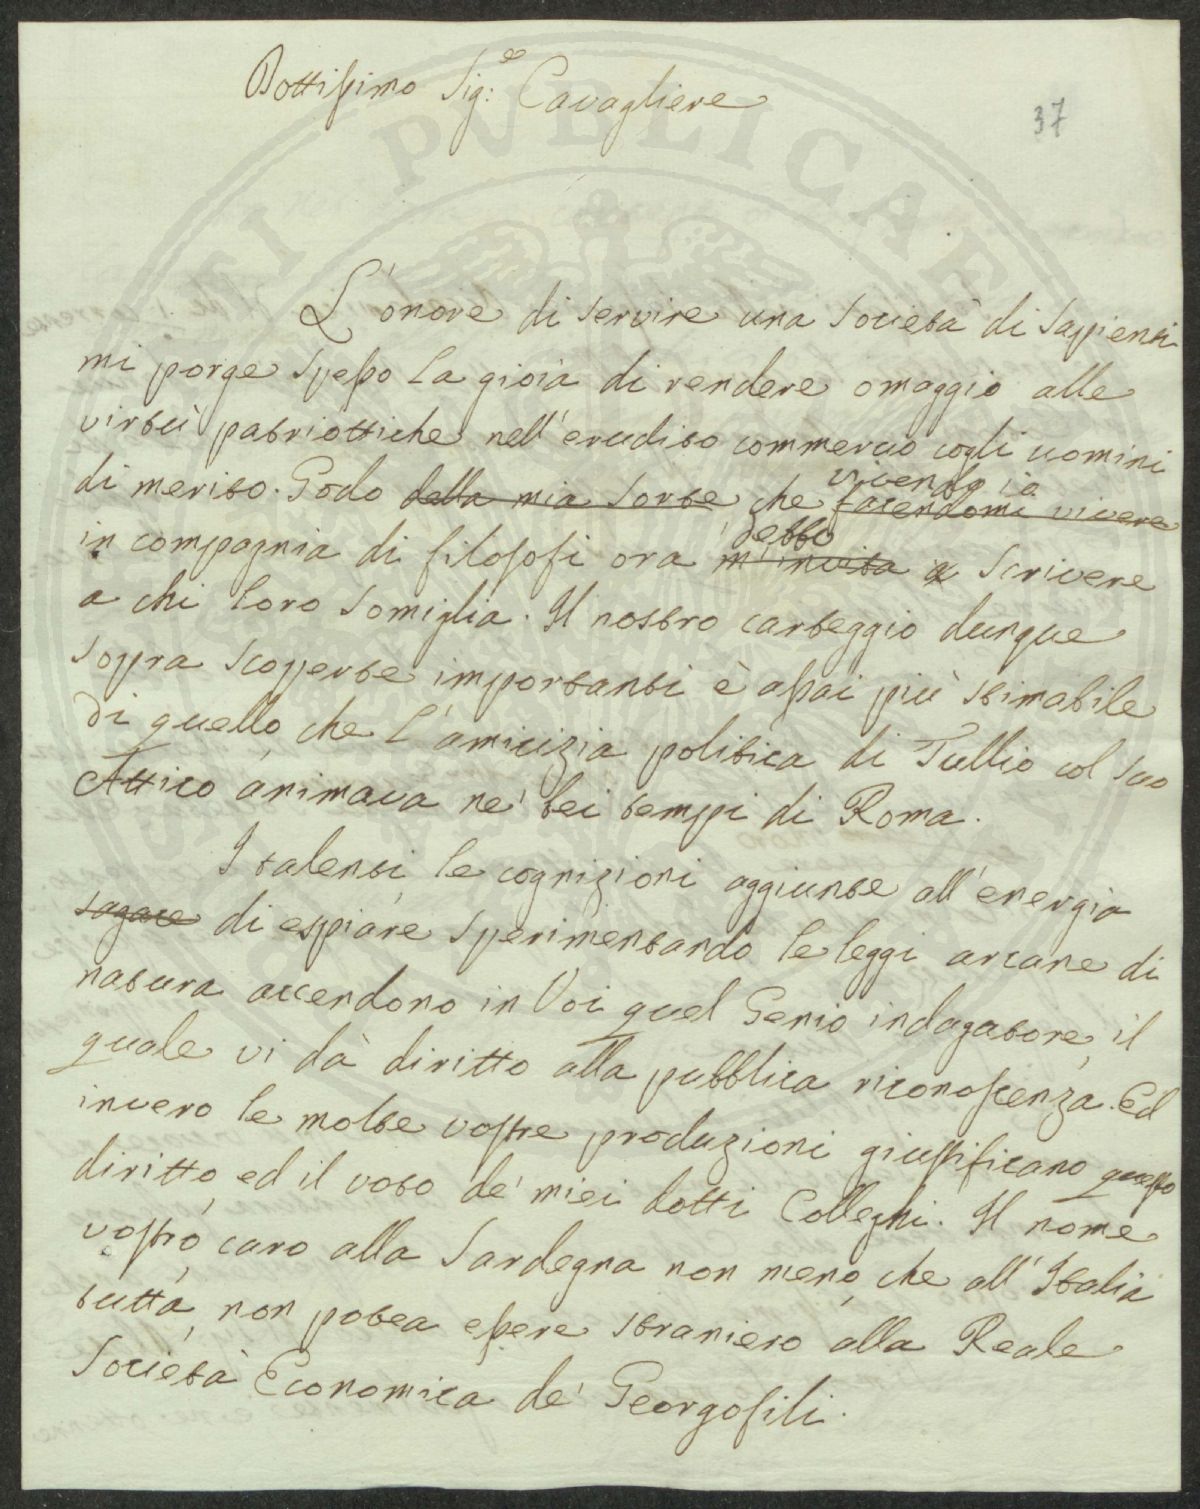 Dottissimo Sig.e Cavagliere
37
L'onore di servire una Società di Sapienti
mi porge spesso la gioia di rendere omaggio alle
virtù patriottiche nell'erudito commercio cogli uomini
di merito. Godo della mia sorte che vivendo io facendomi vivere
in compagnia di filosofi ora debbo m'invita a scrivere
a chi loro somiglia. Il nostro carteggio dunque
sopra scoperte importanti è assai più stimabile
di quello, che l'amicizia politica di Tullio col suo
Attico animava ne' bei tempi di Roma.
I talenti le cognizioni aggiunte all'energia
sagace di espiare sperimentando le leggi arcane di
natura accendono in Voi quel Genio indagatore, il
quale vi dà diritto alla pubblica riconoscenza. Ed
invero le molte vostre produzioni giustificano questo
diritto, ed il voto de' miei dotti Colleghi. Il nome
vostro, caro alla Sardegna non meno, che all'Italia
tutta, non potea essere straniero alla Reale
Società Economica de' Georgofili.
PUBLICAE